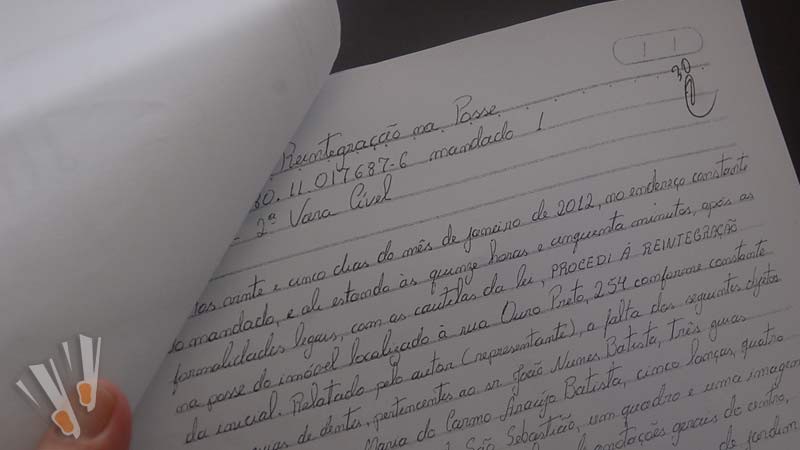 30
Reintegração na Posse
30.11 017687-6 mandado 1
2ª Vara Cível
Aos vinte e cinco dias do mês de janeiro de 2012, no endereço constante
do mandado, e ali estando às quinze horas e cinquenta minutos, após as
formalidades legais, com as cautelas da lei, PROCEDI À REINTEGRAÇÃO
na posse do imóvel localizado à rua Ouro Preto, 254 conforme constante
da inicial. Relatado pelo autor (representante), a falta dos seguintes objetos
guias de dentes, pertencentes ao sr. João Nunes Batista, três guias
Maria do Carmo Araújo Batista, cinco lanças, quatro
São Sebastião, um quadro e uma imagem
anotações gerais do centro,
de jardim